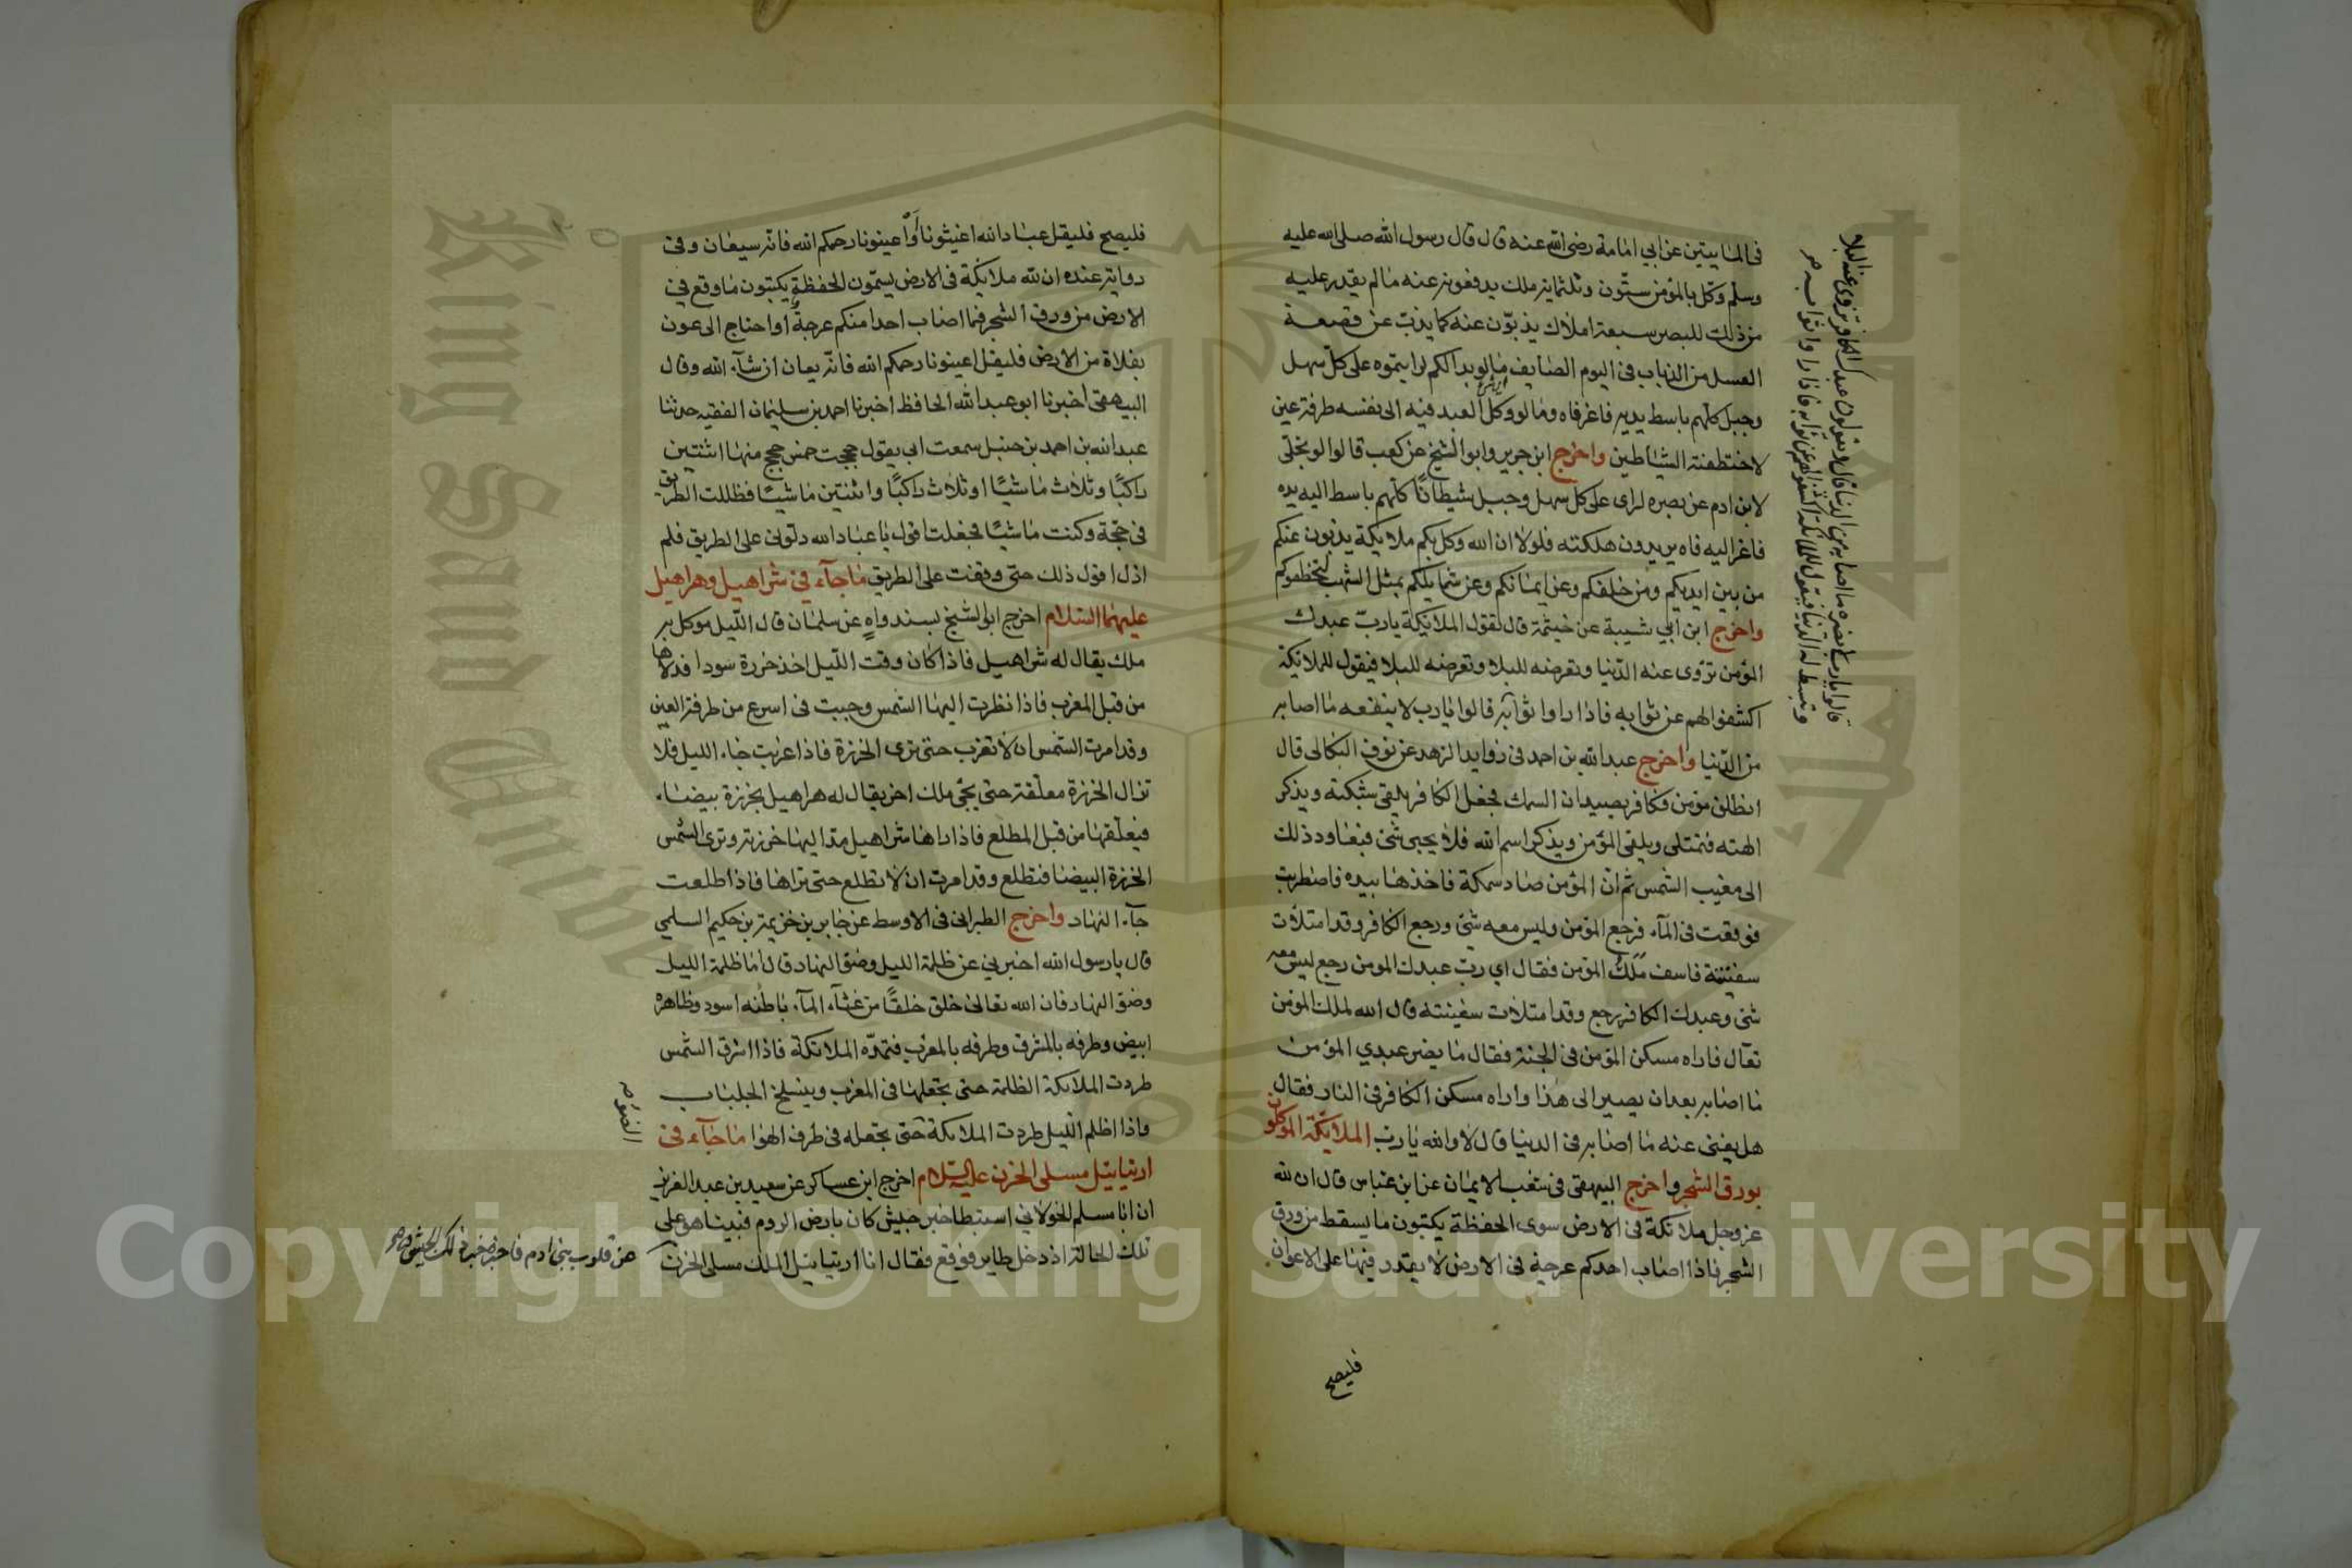 فى المايتين عن ابي امامة رضى الله عنه قال قال رسول الله صلى الله عليه
وسلم وكل بالمؤمن ستون وثلثماية ملك يدفعون عنه مالم يقدر عليه
من ذلك للبصر سبعة املاك يذبون عنه كما يذب عن قصعة
العسل من الذباب فى اليوم الصايف مالو بدا لكم لرايتموه على كل سهل
وجبل كلهم باسط يديه فاغرفاه ومالو وكل العبد فيه الى نفسه طرفة عين
لاختطفته الشياطين واخرج ابن جرير وابو الشيخ عن كعب قال لو تجلى
لابن ادم عن بصره لراى على كل سهل وجبل شيطانا كلهم باسط اليه يده
فاغر اليه فاه يريدون هلكته فلولا ان الله وكل بكم ملايكة يذبون عنكم
من بين ايديكم ومن خلفكم وعن ايمانكم وعن شمايلكم بمثل الشهب لتخطفوكم
واخرج ابن ابي شيبة عن خيثمة قال تقول الملايكة يارب عبدك
المؤمن تزوى عنه الدنيا وتعرضه للبلا وتعرضه للبلا فيقول للملائكة
اكشفوا لهم عن ثوابه فاذا راوا ثوابه قالوا يارب لا ينفعه ما اصابه
من الدنيا واخرج عبدالله بن احمد فى زوايد الزهد عن نوف البكالى قال
انطلق مؤمن وكافر يصيدان السمك فجعل الكافر يلقى شبكته ويذكر
الهته فتمتلى ويلقى المؤمن ويذكر اسم الله فلا يجيى شئ فبغاود ذلك
الى مغيب الشمس ثم ان المؤمن صاد سمكة فاخذها بيده فاضطربت
فوقعت فى المآء فرجع المؤمن وليس معه شئ ورجع الكافر وقد امتلات
سفينته فاسف ملك المؤمن فقال اي رب عبدك المومن رجع ليس معه
شئ وعبدك الكافر رجع وقد امتلات سفينته قال الله لملك المؤمن
تعال فاراه مسكن المؤمن فى الجنة فقال ما يضر عبدي المؤمن
ما اصابه بعد ان يصير الى هذا واراه مسكن الكافر فى النار فقال
هل يغنى عنه ما اصابه فى الدنيا قال لا والله يارب الملايكة الموكلون
بورق الشجر واخرج البيهقى فى شعب الايمان عن ابن عباس قال ان لله
عز وجل ملائكة فى الارض سوى الحفظة يكتبون ما يسقط من ورق
الشجر فاذا اصاب احدكم عرجة فى الارض لا يقدر فيها على الاعوان
فليصح
فليصح فليقل عباد الله اغيثونا أو اعينونا رحمكم الله فانه سيعان وفى
رواية عنده ان لله ملائكة فى الارض يسمون الحفظة يكتبون ما وقع في
الارض من ورق الشجر فما اصاب احدا منكم عرجة او احتاج الى عون
بفلاة من الارض فليقل اعينونا رحمكم الله فانه يعان ان شآء الله وقال
البيهقى اخبرنا ابو عبدالله الحافظ اخبرنا احمد بن سليمان الفقيه حدثنا
عبدالله بن احمد بن حنبل سمعت ابي يقول حججت خمس حجج منها اثنتين
راكبا وثلاث ماشيا او ثلاث راكبا واثنتين ماشيا فظللت الطريق
فى حجة وكنت ماشيا فجعلت اقول يا عباد الله دلونى على الطريق فلم
ازل اقول ذلك حتى وقفت على الطريق ماجآء فى شراهيل وهراهيل
عليهما السلام اخرج ابو الشيخ بسند واه عن سلمان قال الليل موكل به
ملك يقال له شراهيل فاذا كان وقت الليل اخذ خرزة سودا فدلاها
من قبل المغرب فاذا نظرت اليها الشمس وجبت فى اسرع من طرفة العين
وقد امرت الشمس ان لا تغرب حتى ترى الخرزة فاذا غربت جاء الليل فلا
تزال الخرزة معلقة حتى يجئ ملك اخر يقال له هراهيل بخرزة بيضاء
فيعلقها من قبل المطلع فاذا راها شراهيل مد اليها خرزته وترى الشمس
الخرزة البيضا فتطلع وقد امرت ان لا تطلع حتى تراها فاذا طلعت
جآء النهار واخرج الطبرانى فى الاوسط عن جابر بن خزيمة بن حكيم السلمي
قال يارسول الله اخبرني عن ظلمة الليل وضؤ النهار قال اما ظلمة الليل
وضؤ النهار فان الله تعالى خلق خلقا من غثآء المآء باطنه اسود وظاهره
ابيض وطرفه بالمشرق وطرفه بالمغرب فتمده الملائكة فاذا اشرق الشمس
طردت الملائكة الظلمة حتى تجعلها فى المغرب وينسلخ الجلباب
واذا اظلم الليل طردت الملائكة حتى تجعله فى طرف الهوا ماجآء فى
ارتياييل مسلى الحزن عليه السلام اخرج ابن عساكر عن سعيد بن عبد العزيز
ان ابا مسلم الخولاني استبطا خبر جيش كان بارض الروم فبينا هو على
تلك الحالة اذ دخل طاير فوقع فقال انا ارتياييل الملك مسلى الحزن
من قلوب بنى ادم فاخبره خبر ذلك الجيش
Copyright © King Saud University